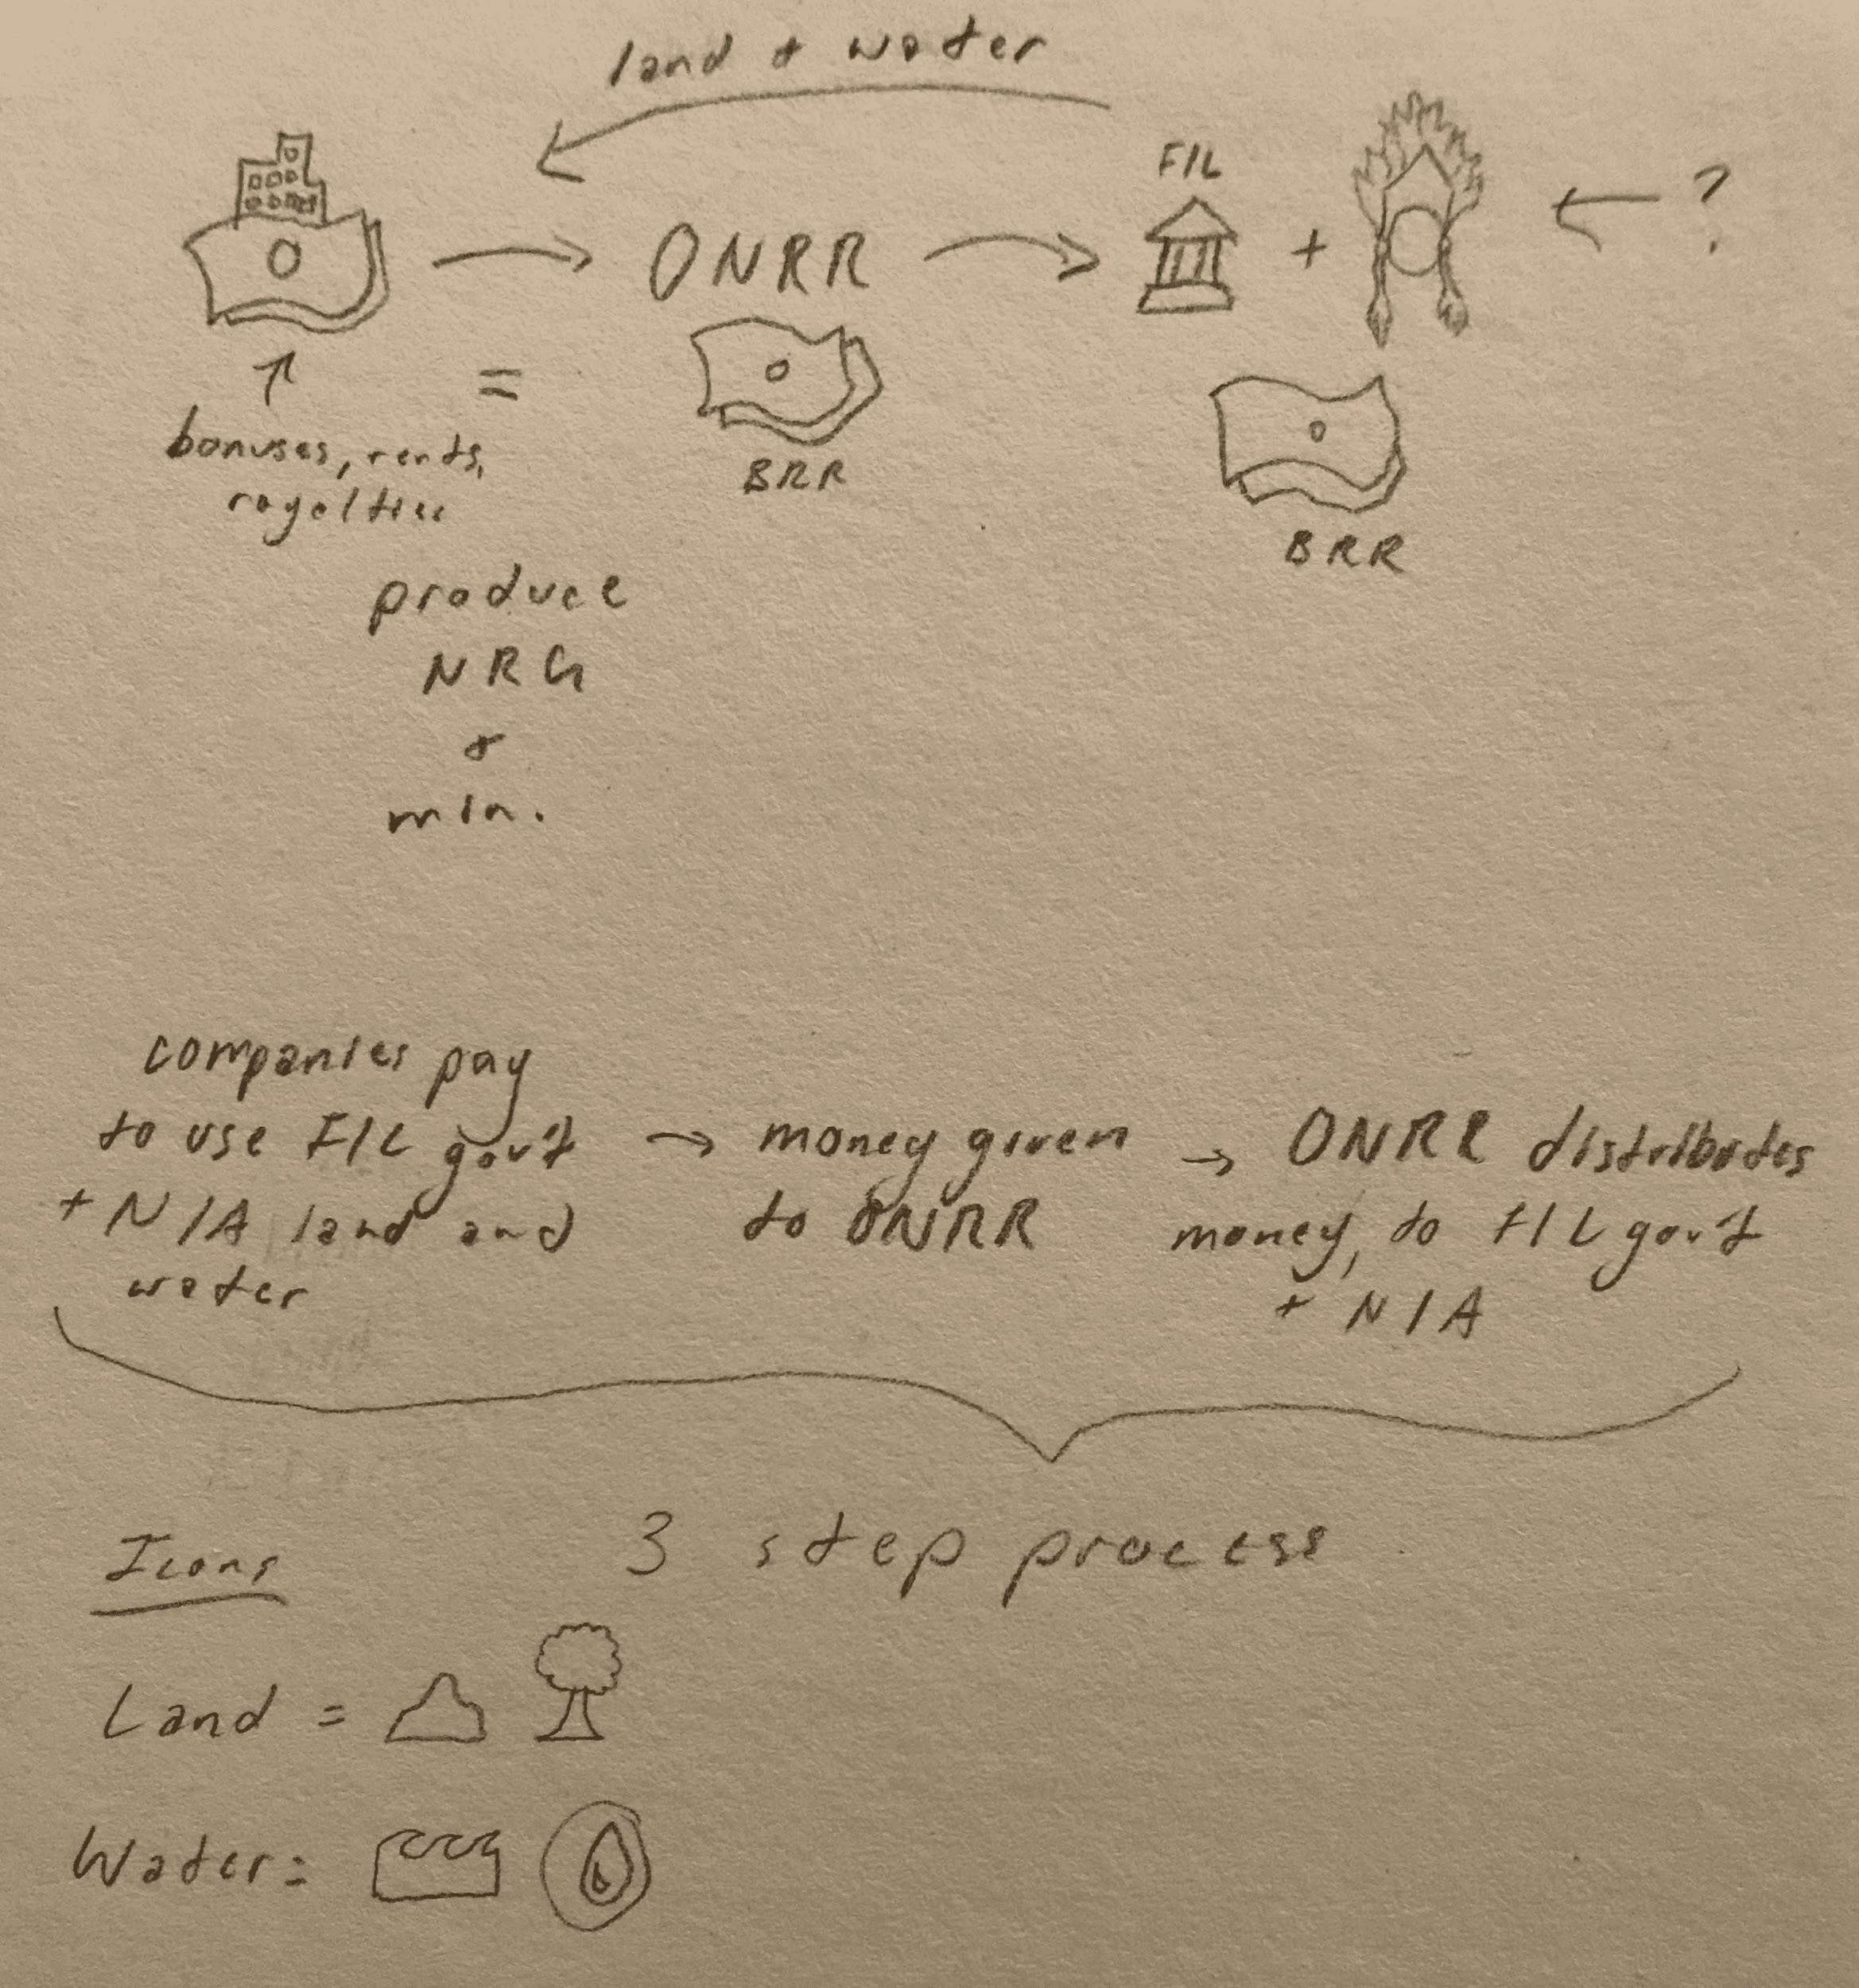 land + water
F/L
?
ONRR
+
=
bonuses, rents,
royalties
BRR
BRR
produce
NRG
+
min.
companies pay
to use F/L gov't
+ N/A land and
water
→ money given
to ONRR
→ ONRR distributes
money, to F/L gov't
+ N/A
Icons
3 step process
Land =
Water =